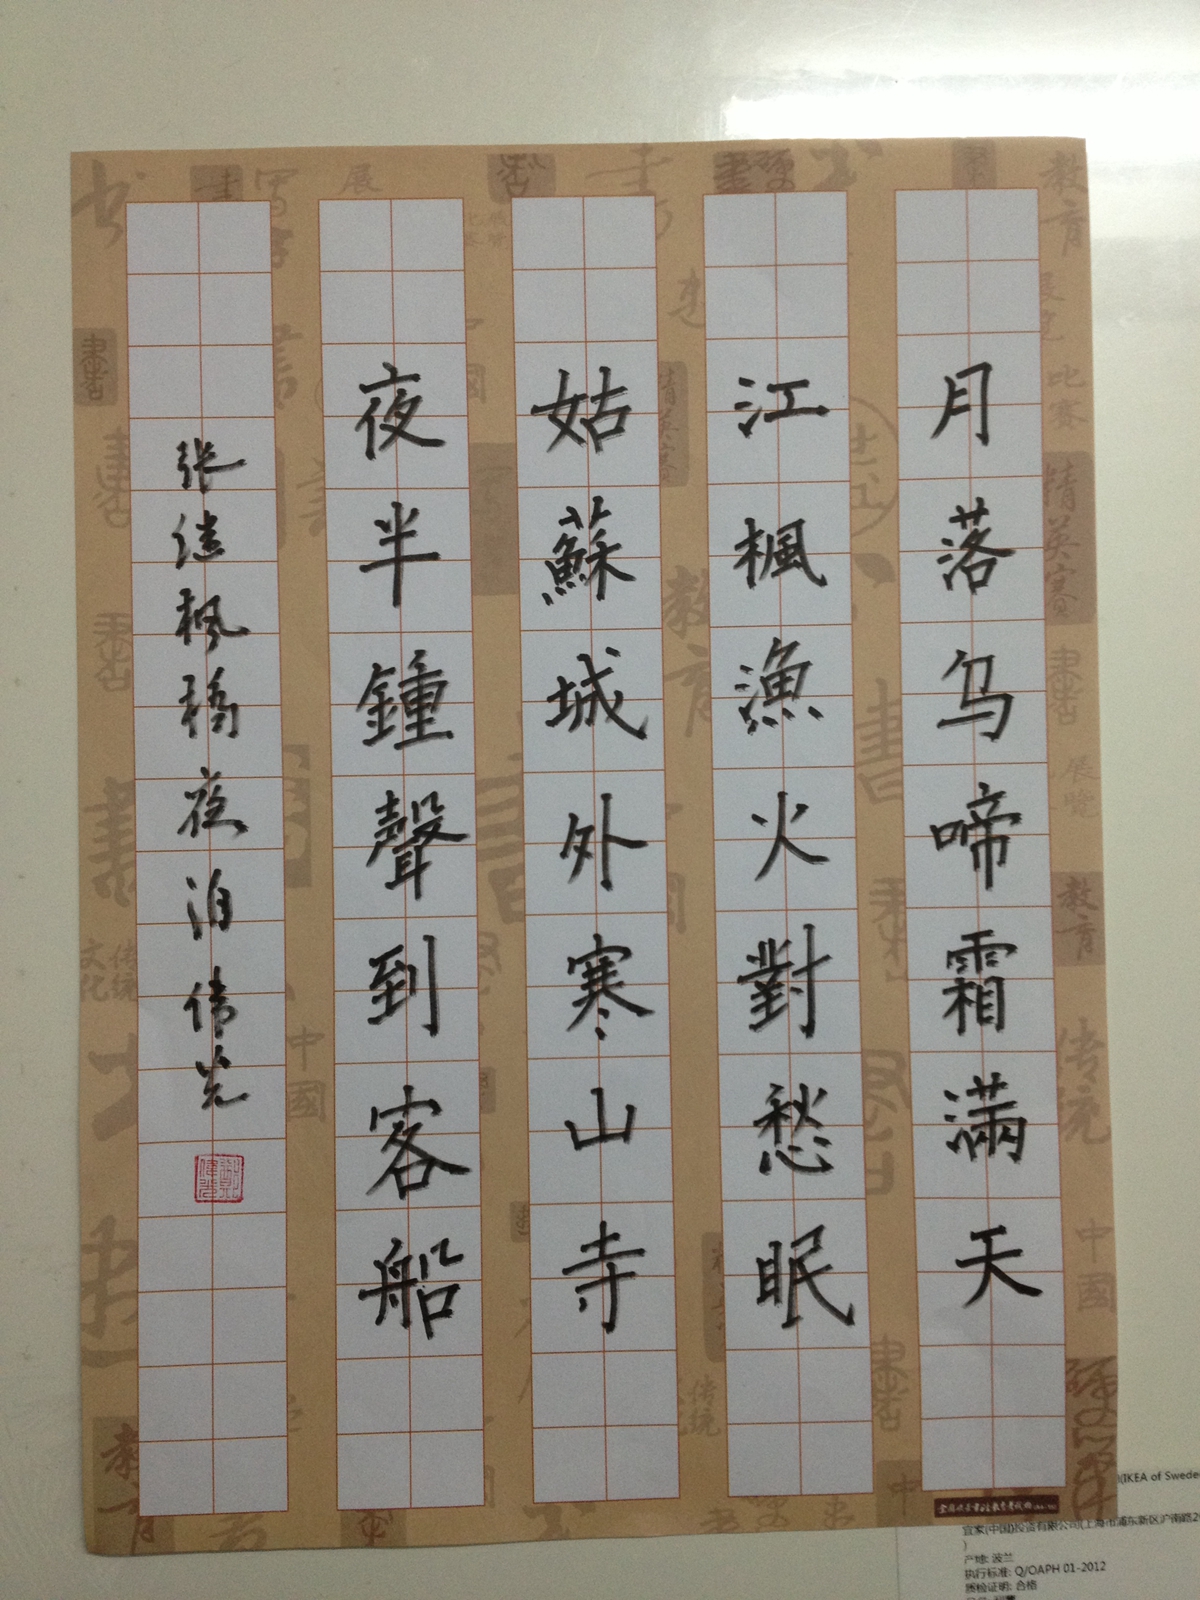 月落乌啼霜滿天
江楓漁火對愁眠
姑蘇城外寒山寺
夜半鍾聲到客船
张继枫橋夜泊偉光
(IKEA of Swede
宜家(中国)投资有限公司(上海市浦东新区沪南路2
)
产地: 波兰
执行标准: Q/OAPH 01-2012
质检证明: 合格